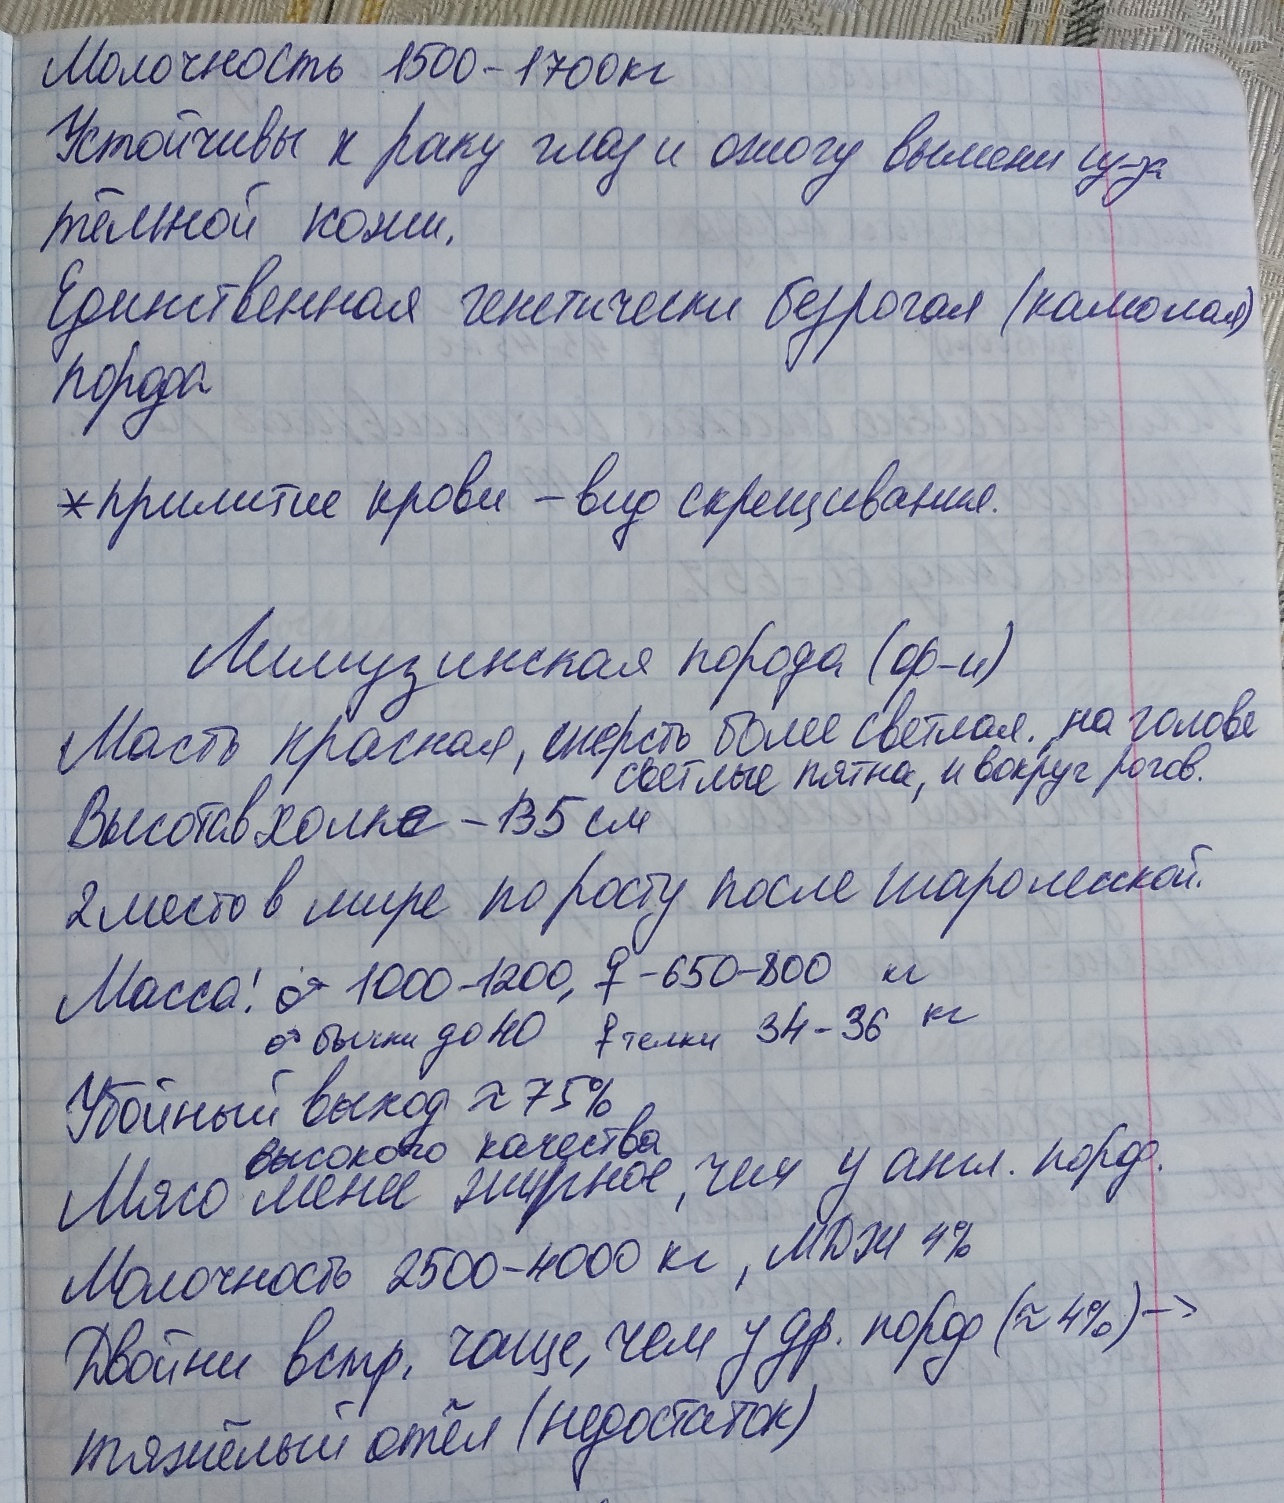 Молочность 1500-1700кг
Устойчивы к раку глаз и ожогу вымени из-за
тёмной кожи.
Единственная генетически безрогая (комолая)
порода
*прилитие крови - вид скрещивания.
Лимузинская порода (фр-и)
Масть красная, шерсть более светлая., на голове
светлые пятна, и вокруг рогов.
Высота в холке - 135 см
2 место в мире по росту после шаролесской.
Масса! ♂ 1000-1200, ♀ -650-800 кг
♂ бычки до 40 ♀ телки 34-36 кг
Убойный выход ≈ 75%
высокого качества
Мясо менее жирное, чем у англ. пород.
Молочность 2500-4000 кг, МДЖ 4%
Двойни встр. чаще, чем у др. пород (≈ 4%) ->
тяжёлый отёл (недостаток)